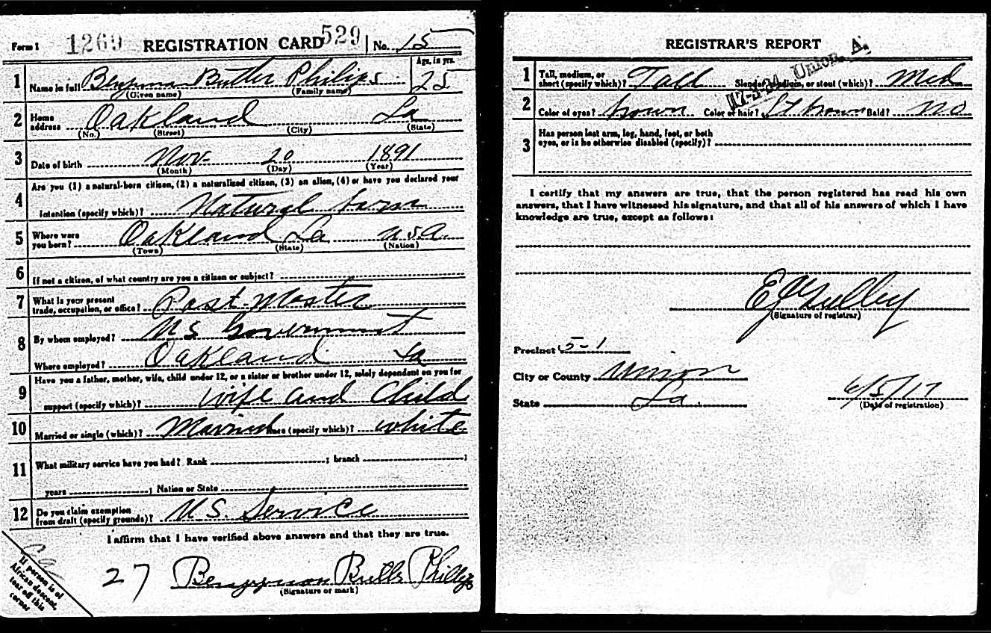 Form 1 1269 REGISTRATION CARD 529 No. 15
1 Name in full Benjamin Butler Philips Age, in yrs. 25
(Given name) (Family name)
2 Home address Oakland La
(No.) (Street) (City) (State)
3 Date of birth Nov. 20 1891
(Month) (Day) (Year)
4 Are you (1) a natural-born citizen, (2) a naturalized citizen, (3) an alien, (4) or have you declared your
intention (specify which)? Natural born
5 Where were you born? Oakland La U.S.A.
(Town) (State) (Nation)
6 If not a citizen, of what country are you a citizen or subject?
7 What is your present trade, occupation, or office? Post Master
8 By whom employed? U S Government
Where employed? Oakland La
9 Have you a father, mother, wife, child under 12, or a sister or brother under 12, solely dependent on you for
support (specify which)? Wife and Child
10 Married or single (which)? Married Race (specify which)? White
11 What military service have you had? Rank ; branch ;
years ; Nation or State
12 Do you claim exemption from draft (specify grounds)? U.S. Service
I affirm that I have verified above answers and that they are true.
27 Butler Phillips
(Signature or mark)
If person is of
African descent,
tear off this
corner
REGISTRAR'S REPORT
17-1-24, Union, A.
1 Tall, medium, or short (specify which)? Tall Slender, medium, or stout (which)? Med
2 Color of eyes? brown Color of hair? Lt brown Bald? No
3 Has person lost arm, leg, hand, foot, or both
eyes, or is he otherwise disabled (specify)?
I certify that my answers are true, that the person registered has read his own
answers, that I have witnessed his signature, and that all of his answers of which I have
knowledge are true, except as follows:
E J Gulley
(Signature of registrar)
Precinct 5-1
City or County Union
State La 6/5/17
(Date of registration)